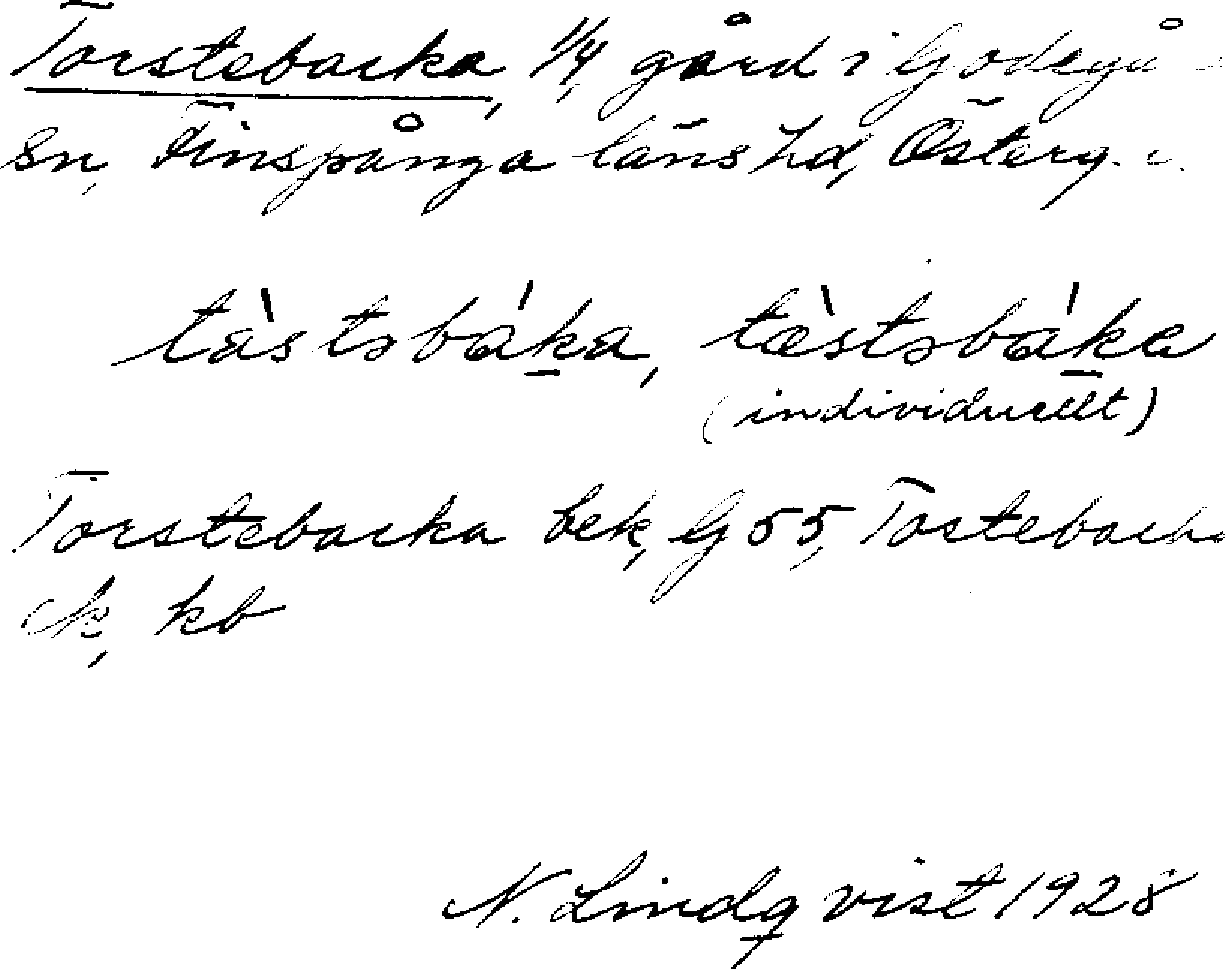 Torstebacka, 1/4, gård i Godegå
sn, Finspånga läns hd, Österg.
tàstsbáka, tæ̀stsbáka
(individuellt)
Torstebacka bek, G 55, Tostebacka
k, kb
N. Lindqvist 1928